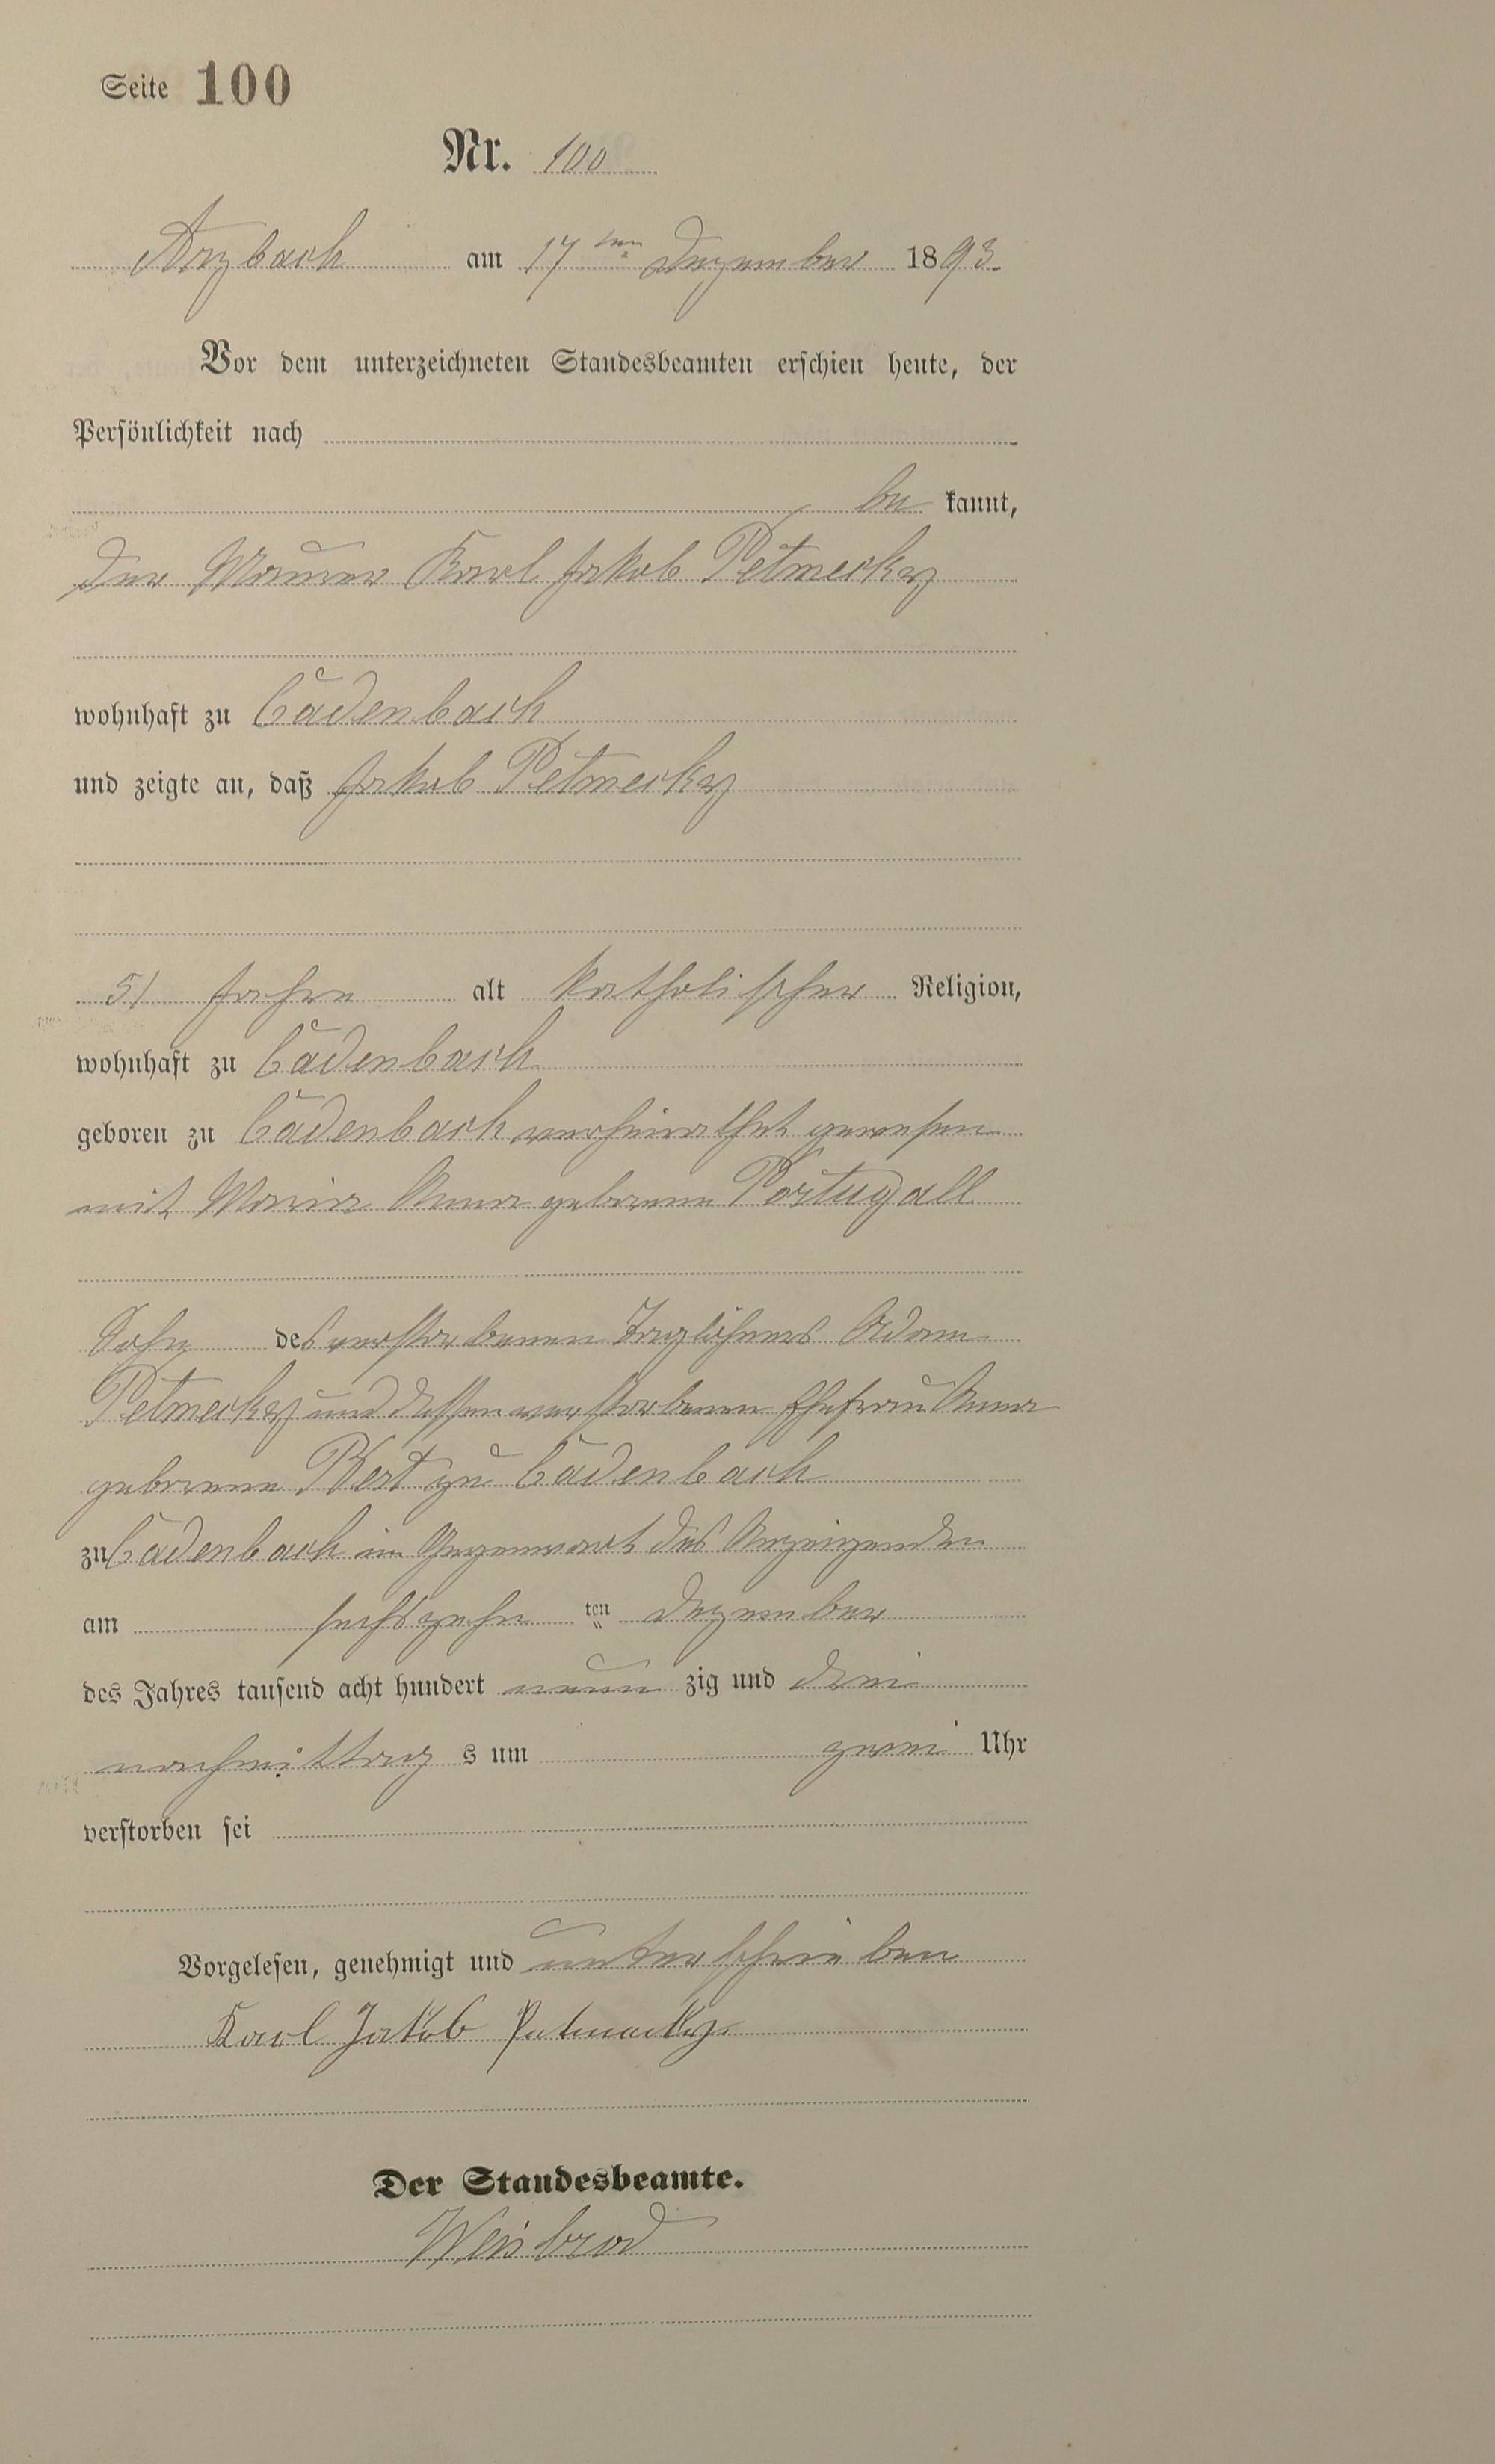 Seite 100
Nr. 100
Arzbach am 17ten Dezember 1893.
Vor dem unterzeichneten Standesbeamten erschien heute, der
Persönlichkeit nach
be kannt,
der Maurer Karl Jakob Petmecky
wohnhaft zu Cadenbach
und zeigte an, daß Jakob Petmecky
51 Jahre alt katholischer Religion,
wohnhaft zu Cadenbach
geboren zu Cadenbach verheirathet gewesen
mit Maria Anna geborene Portugall
Sohn des verstorbenen Taglöhners Adam
Petmecky und dessen verstorbenen Ehefrau Anna
geborene zu Cadenbach
zu Cadenbach in Gegenwart des Anzeigenden
am sechszehn ten Dezember
des Jahres tausend acht hundert neun zig und drei
nachmittag s um zwei Uhr
verstorben sei
Vorgelesen, genehmigt und unterschrieben
Karl Jakob Petmecky.
Der Standesbeamte.
Weisbrod